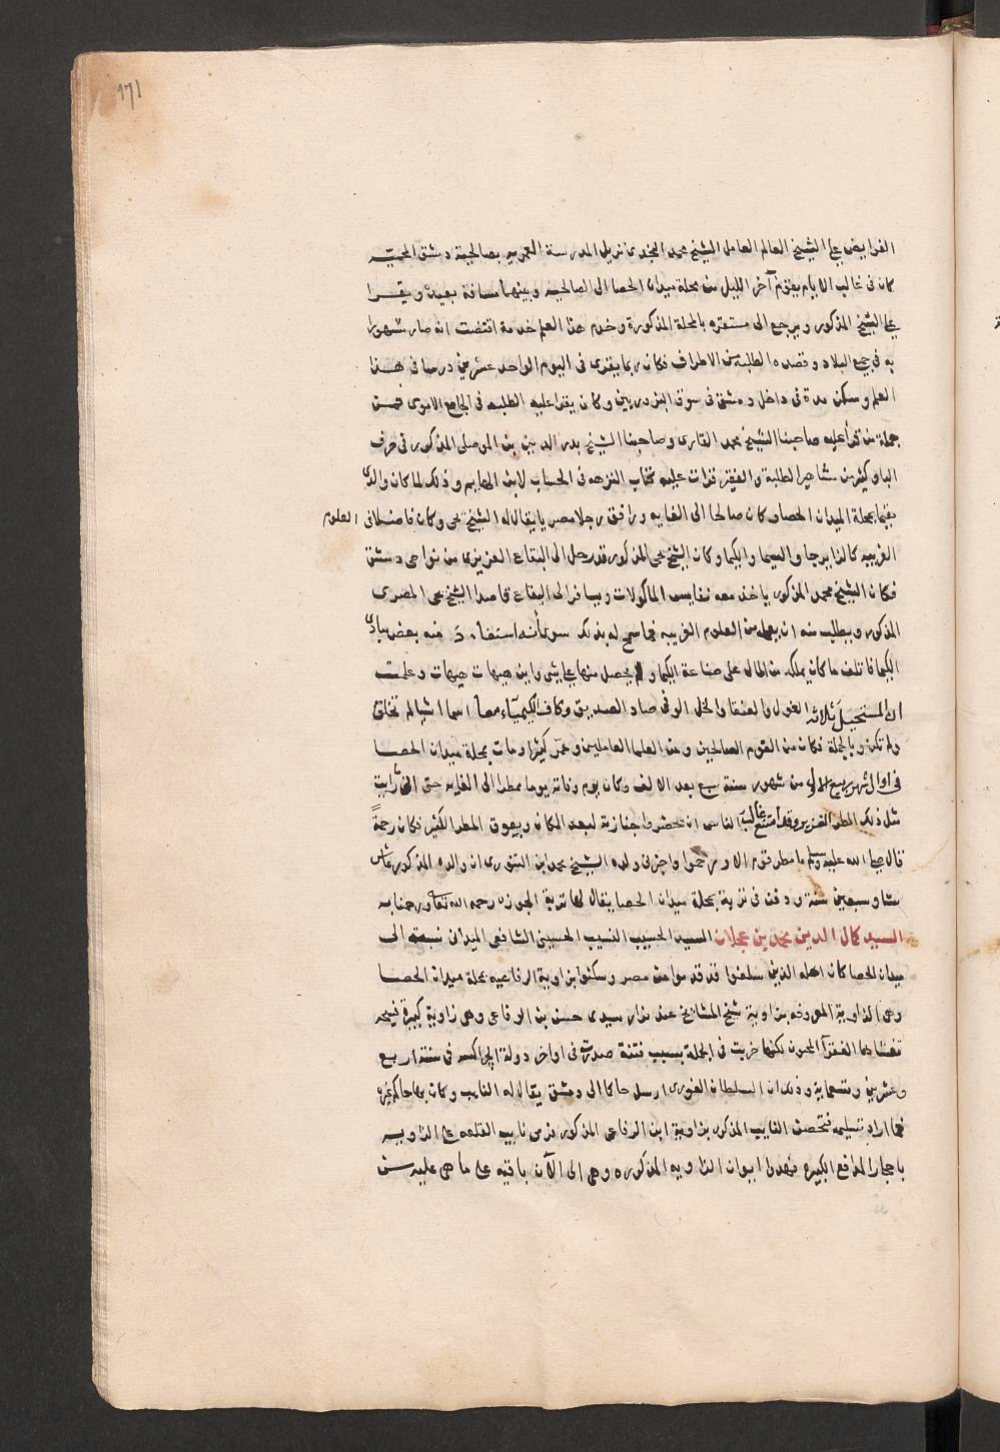 171
الفرايض علي الشيخ العالم العامل الشيخ محمد النجدي نزيل المدرسة العمريه بصالحية دمشق المحميه
كان في غالب الايام يقوم آخر الليل من محلة ميدان الحصا الى الصالحيه وبينهما مسافة بعيدة ويقرا
علي الشيخ المذكور ويرجع الى مستقره بالمحلة المذكورة وخدم هذا العلم خدمة اقتضت انه صار مشهورا
به في جميع البلاد وقصده الطلبة من الاطراف فكان ربما يقرى في اليوم الواحد عشرين درسا في هذا
العلم وسكن مدة في داخل دمشق في سوق البزوريين وكان يقرا عليه الطلبه في الجامع الاموي فمن
جملة من قرأ عليه صاحبنا الشيخ محمد القاري وصاحبنا الشيخ بدر الدين بن الموصلي المذكور في حرف
البا وكثير من مشاهير الطلبة والفقير قرات عليه كتاب النزهه في الحساب لابن الهايم وذلك لما كان والدي
مقيما بمحلة الميدان الحصا وكان صالحا الى الغايه ورافق رجلا مصريا يقال له الشيخ يحيى وكان فاضلا في العلوم
الغريبه كالزايرجا والسيما والكيما وكان الشيخ يحيى المذكور قد رحل الى البقاع العزيزى من نواحي دمشق
فكان الشيخ محمد المذكور ياخذ معه نفايس الماكولات ويسافر الى البقاع قاصدا الشيخ يحيى المصري
المذكور ويطلب منه ان يعلمه من العلوم الغريبه فما سمح له بذلك سوى أنه استفاد منه بعض مبادي
الكيما فاتلف ما كان يملكه من المال على صناعة الكيما ولم يحصل منها علي شي واين هيهات هيهات وعلمت
ان المستحيل ثلاثه الغول والعنقا والخل الوفي صاد الصديق وكاف الكيمياء معا اسما اشيا لم تخلق
ولم تكن وبالجملة فكان من القوم الصالحين ومن العلما العاملين وعمر كثيرا ومات بمحلة ميدان الحصا
في اوايل شهر ربيع الاول من شهور سنة سبع بعد الالف وكان يوم وفاته يوما ممطرا الى الغايه حتى انني ما رايت
مثل ذلك المطر الغزير وقد امتنع غالب الناس ان يحضروا جنازته لبعد المكان ويعوق المطر الكثير فكان رحمةً
قال صلى الله عليه وسلم ما مطر قوم الا ورحموا واخبرني ولده الشيخ محمد ابن التنوري ان والده المذكور عاش
ستا وسبعين سنة ودفن في تربة بمحلة ميدان الحصا يقال لها تربة الجوزه رحمه الله تعالى ورحمنا به
السيد كمال الدين محمد بن عجلان السيد الحسيب النسيب الحسيني الشافعي الميداني نسبته الى
ميدان الحصا كان اهله الذين سلفوا قد قدموا من مصر وسكنوا بزاوية الرفاعيه بمحلة ميدان الحصا
وهي الزاوية المعروفه بزاوية شيخ المشايخ عند مزار سيدي حسن بن الرفاعي وهي زاوية كبيرة فسيحه
تغشاها الفقرآ المحبون لكنها خربت في الجملة بسبب فتنة صدرت في اواخر دولة الجراكسه في سنة اربع
وعشرين وتسعماية وذلك ان السلطان الغوري ارسل حاكما الى دمشق يقال له النايب وكان بها حاكم غيره
فما اراد تسليمه فتحصن النايب المذكور بزاوية ابن الرفاعي المذكور فرمى نايب القلعه على الزاويه
باحجار المدافع الكبيره فهدوا ايوان الزاويه المذكوره وهي الى الآن باقيه على ما هي عليه من